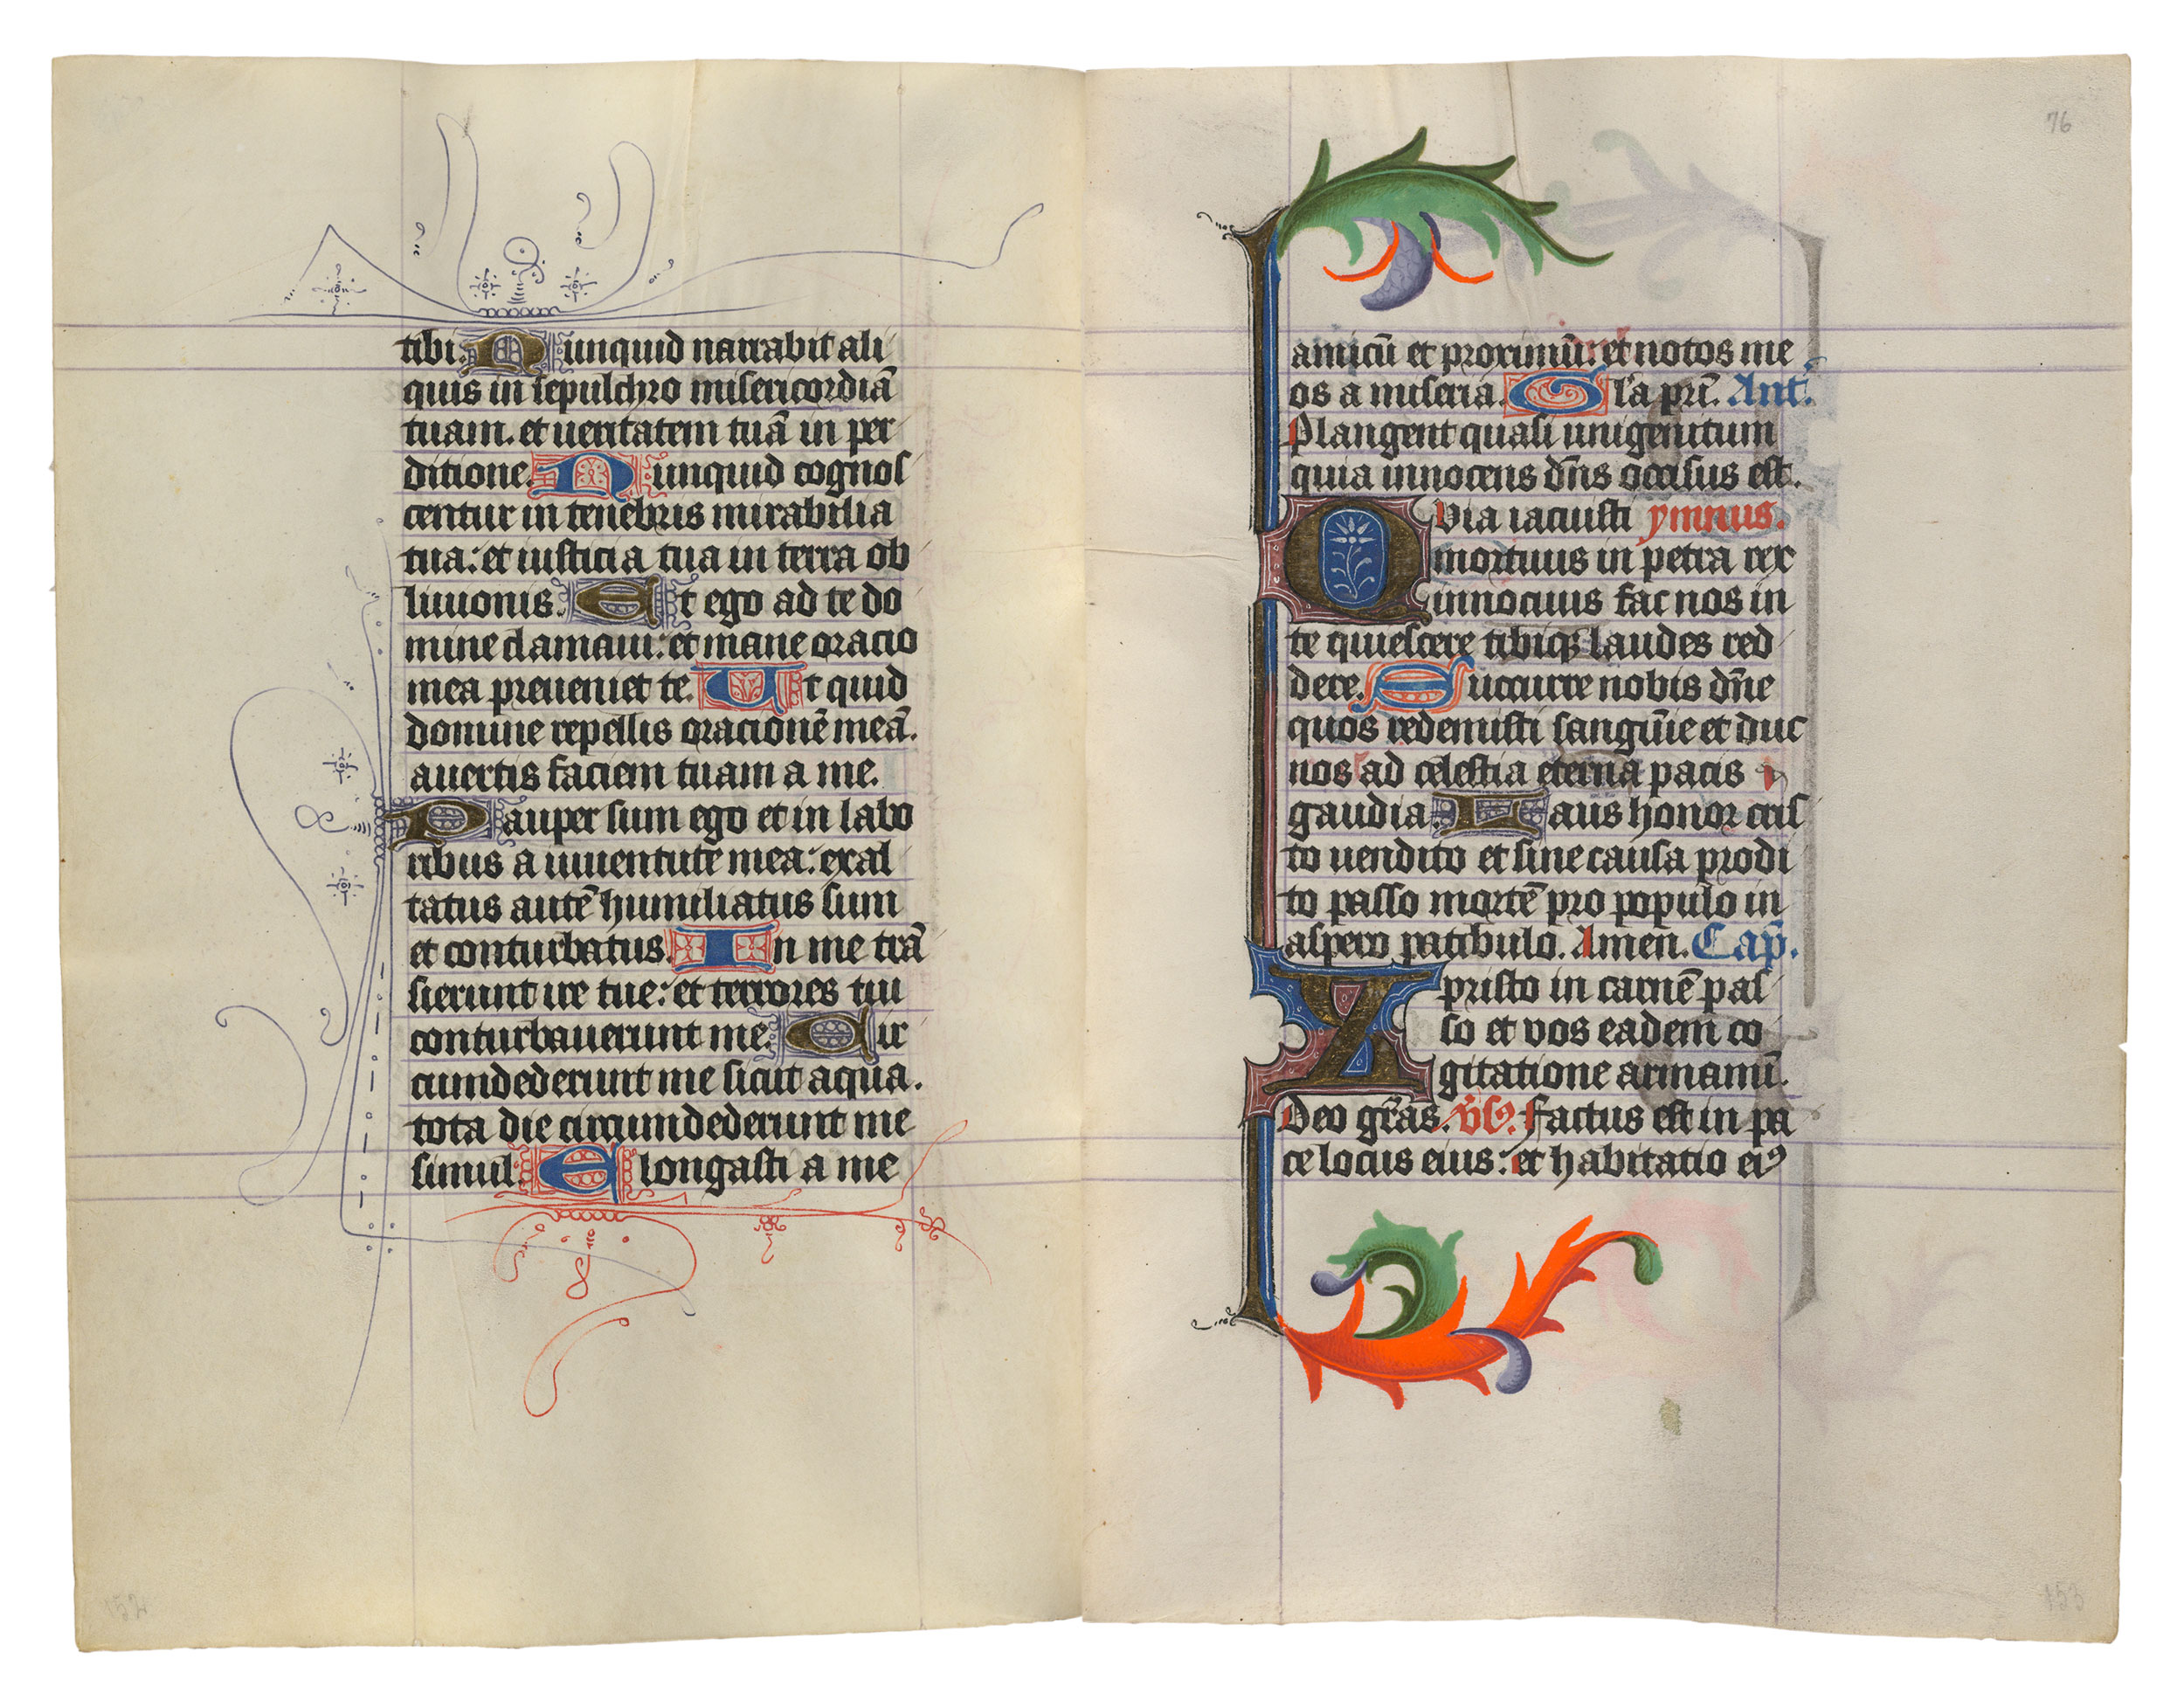 tibi. Nunquid narrabit ali
quis in sepulchro misericordiā
tuam. et ueritatem tuā in per
ditione. Nunquid cognos
centur in tenebris mirabilia
tua: et iusticia tua in terra ob
liuionis. Et ego ad te do
mine clamaui: et mane oracio
mea preueniet te. Ut quid
domine repellis oracionē meā.
auertis faciem tuam a me.
Pauper sum ego et in labo
ribus a iuuentute mea: exal
tatus autē humiliatus sum
et conturbatus. In me trā
sierunt ire tue: et terrores tui
conturbauerunt me. Cir
cumdederunt me sicut aqua.
tota die circumdederunt me
simul. Elongasti a me
152
76
amicū et proximū: et notos me
os a miseria. Gl'a pr̄i. Ant.
Plangent quasi unigenitum
quia innocens dn̄s occisus est.
Quia iacuisti ymnus.
mortuus in petra rex
innocuus fac nos in
te quiescere tibiqꝫ laudes red
dere. Succurre nobis dn̄e
quos redemisti sanguīe et duc
nos ad celestia eterna pacis
gaudia. Laus honor cris
to uendito et sine causa prodi
to passo mortē pro populo in
aspero patibulo. Amen. Cap̄.
Xpristo in carnē pas
so et vos eadem co
gitatione armamī.
Deo gr̄as. v̄s9. Factus est in pa
ce locus eius: et habitatio ei9
153